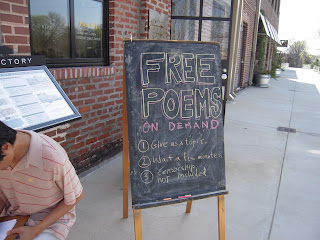 CTORY
FREE
POEMS
ON DEMAND
① Give us a topic.
② Wait a few minutes
③ Censorship
not included